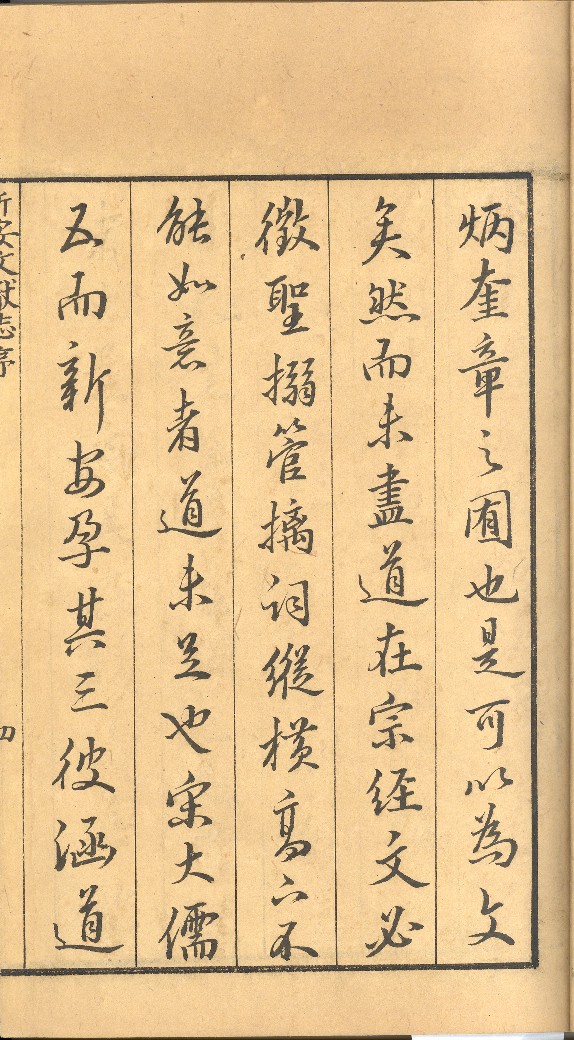 炳奎章之囿也是可以為文
矣然而未盡道在宗經文必
徵聖搦管摛詞縱橫高下不
能如意者道未足也宋大儒
五而新安孕其三彼涵道
新安文獻志序